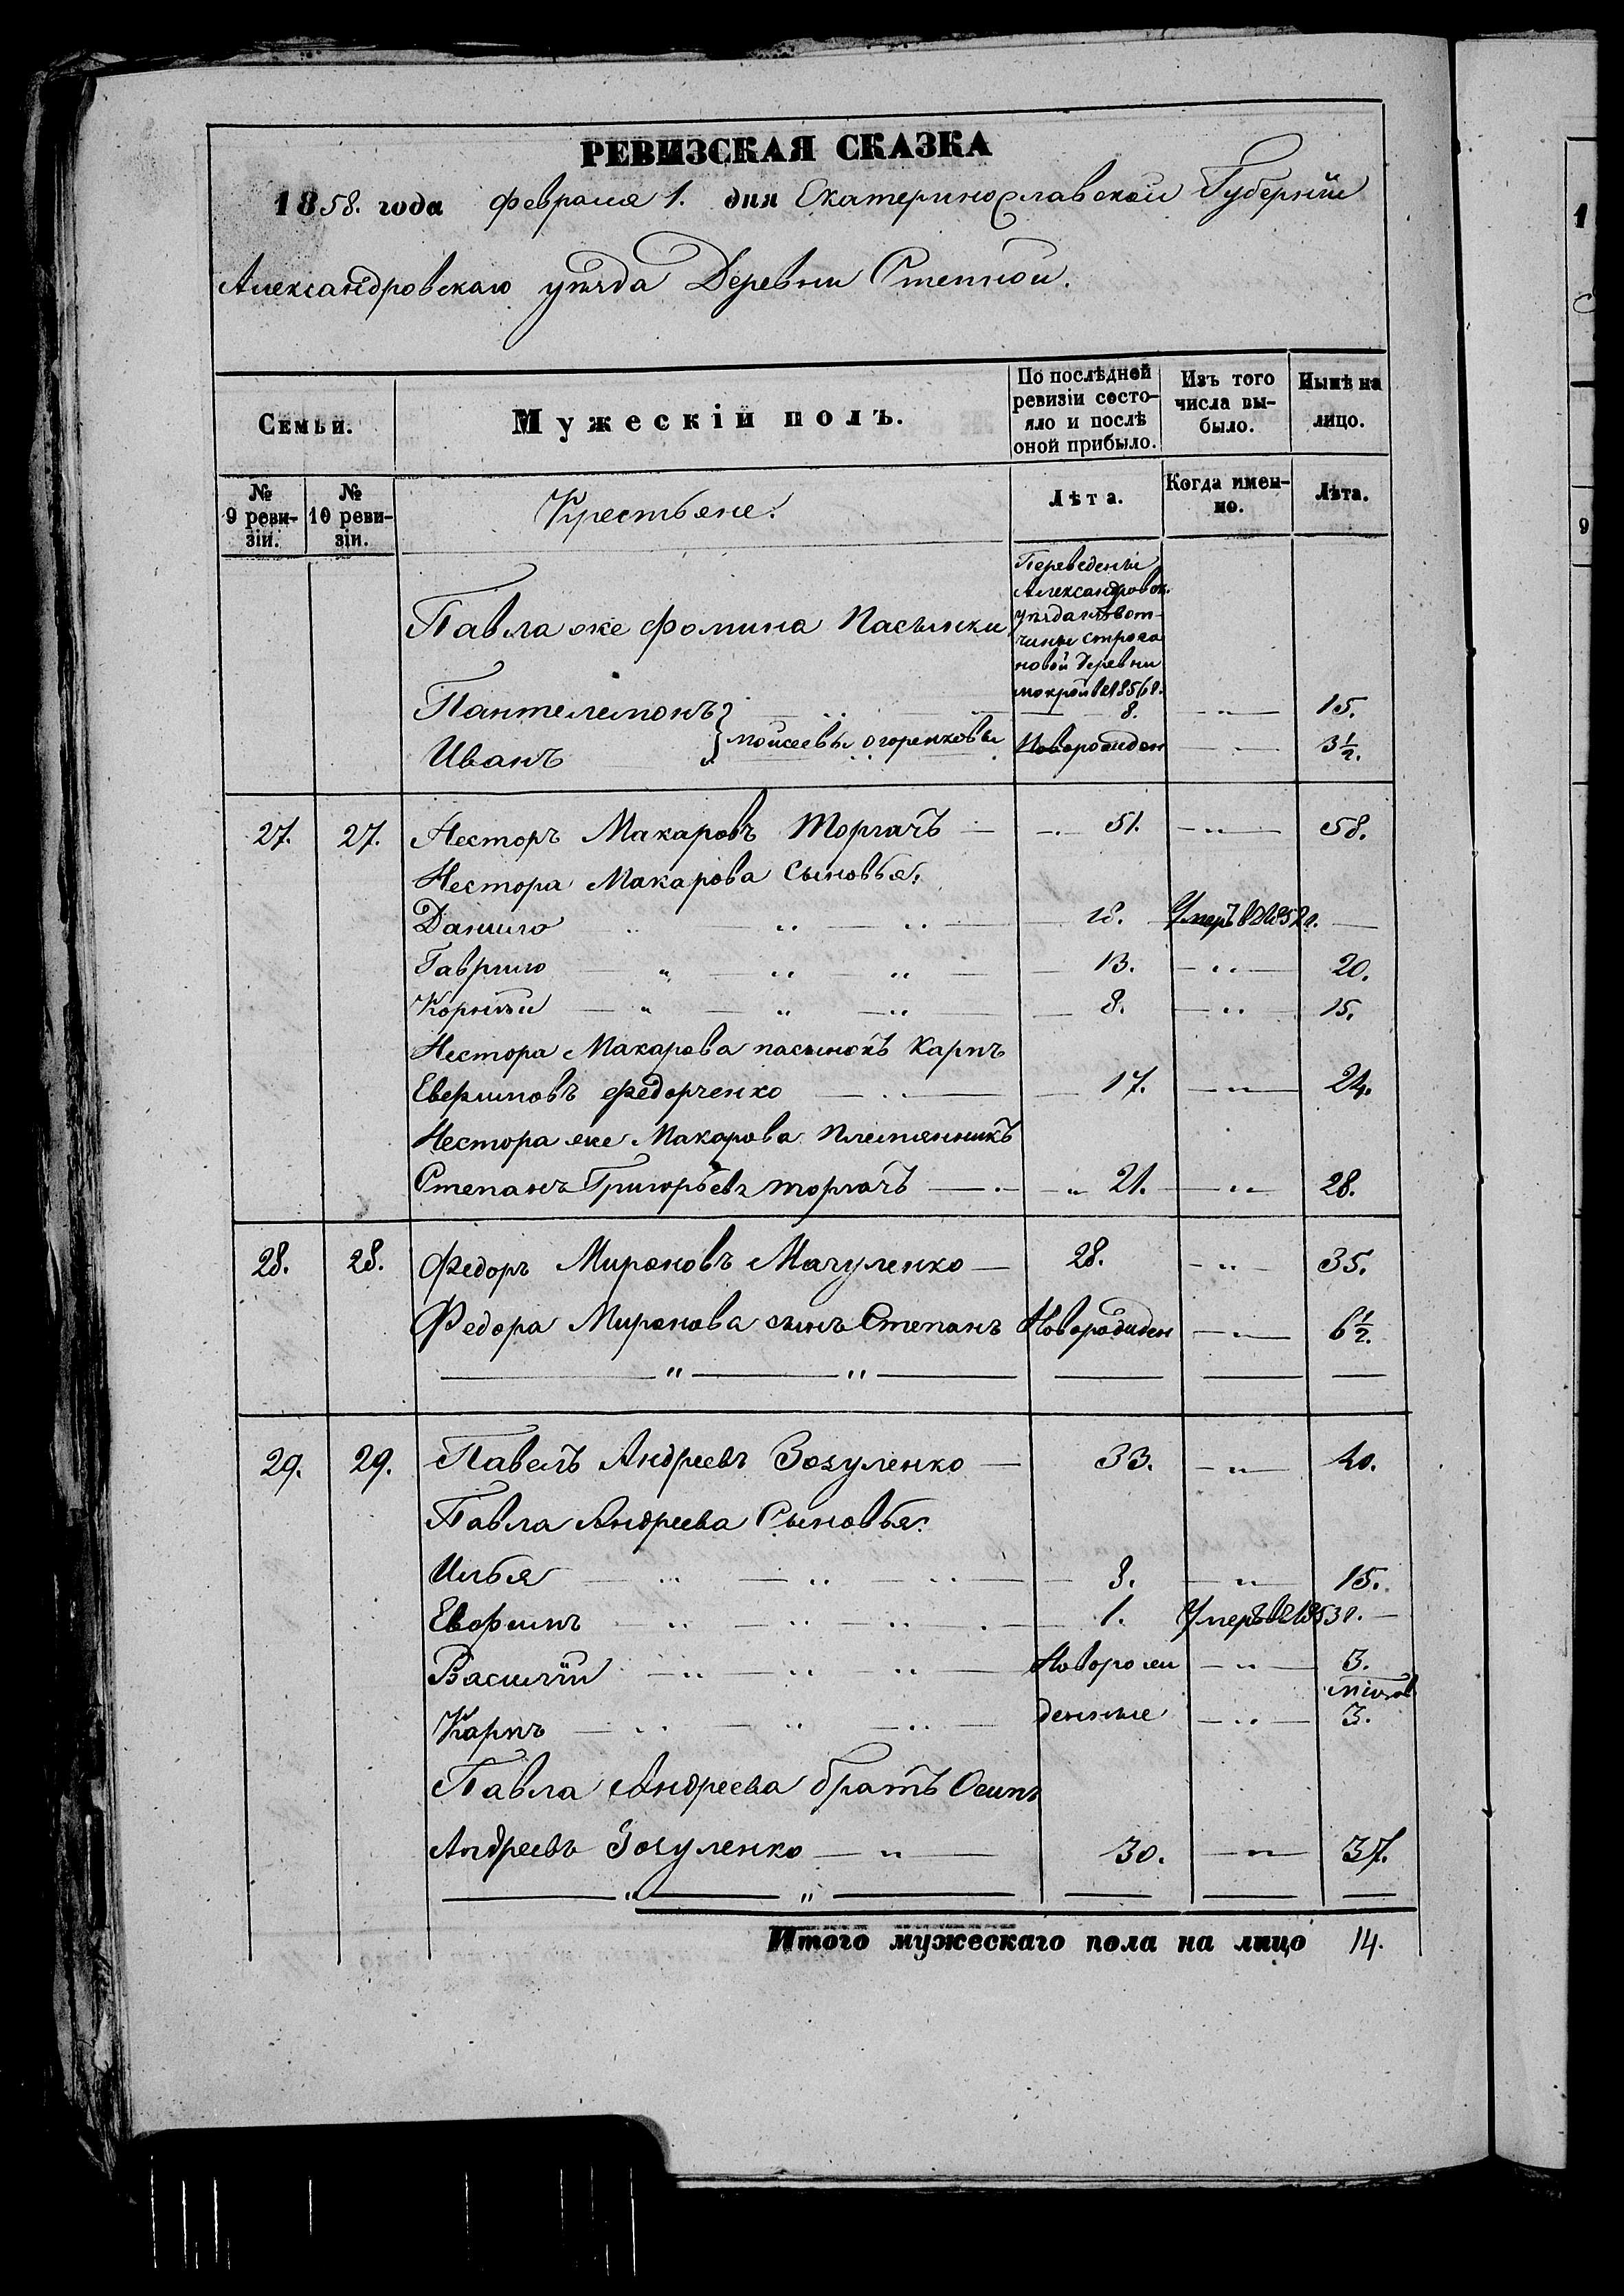 РЕВИЗСКАЯ СКАЗКА
1858. года февраля 1. дня Екатеринославской Губерніи
Александровскаго уѣзда Деревни Степной.
Семьи.
Мужескій полъ.
По послѣдней ревизіи состояло и послѣ оной прибыло.
Изъ того числа выбыло.
Нынѣ на лицо.
№ 9 ревизіи.
№ 10 ревизіи.
Крестьяне.
Лѣта.
Когда именно.
Лѣта.
Павла же Фомина Пасынки
Переведены
Александровск.
уѣзда изъ вот-
чины строга
новой деревни
мокрой в 1856 г.
Пантелемонъ } 8. — " — 15.
Иванъ } Моисеевы Огоренковы Новорожден — " — 3 1/2.
27. 27. Несторъ Макаровъ Торгачъ — 51. — " — 58.
Нестора Макарова Сыновья:
Данило " " " 18. Умеръ в 1852 г. —
Гаврило " " " 13. — " — 20.
Корнѣй " " " 8. — " — 15.
Нестора Макарова пасынокъ Карпъ
Евфимовъ Федорченко — 17. — " — 24.
Нестора же Макарова Племянникъ
Степанъ Григорьевъ торгачъ — " 21. — " — 28.
28. 28. Федоръ Мироновъ Мачуленко — 28. — " — 35.
Федора Миронова сынъ Степанъ Новорожден — " — 6 1/2.
29. 29. Павелъ Андреевъ Зозуленко — 33. — " — 40.
Павла Андреева Сыновья:
Илья " " " 8. — " — 15.
Евфимъ " " " 1. Умеръ в 1853 г. —
Василій " " " Новорож — " — 3.
мѣсяц
Карпъ " " " денные — " — 3.
Павла Андреева братъ Осипъ
Андреевъ Зозуленко — " — 30. — " — 37.
Итого мужескаго пола на лицо 14.
1
9